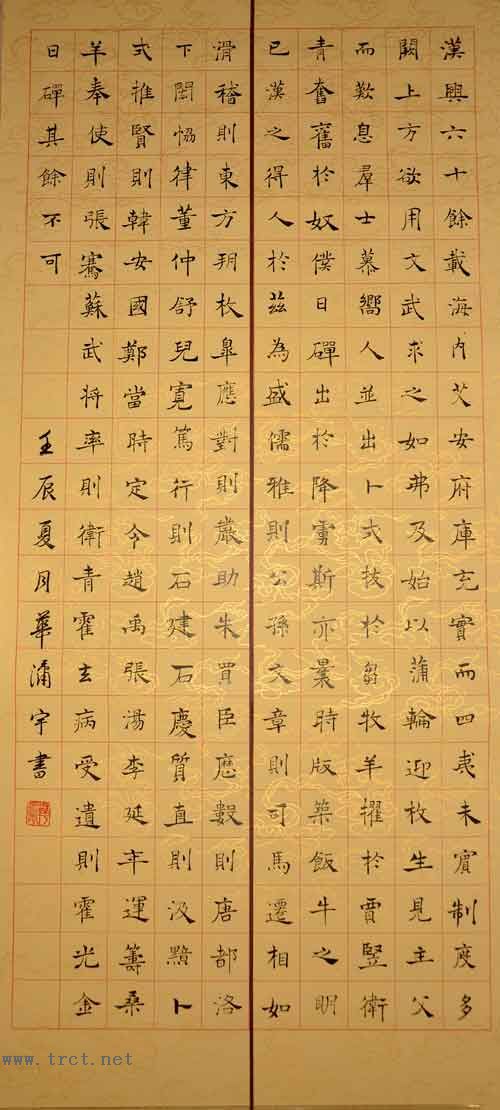 漢興六十餘載海內艾安府庫充實而四夷未賓制度多
闕上方欲用文武求之如弗及始以蒲輪迎枚生見主父
而歎息羣士慕嚮人並出卜式拔於芻牧羊擢於賈豎衛
青奮舊於奴僕日磾出於降虜斯亦曩時版築飯牛之明
已漢之得人於茲為盛儒雅則公孫文章則司馬遷相如
滑稽則東方朔枚皋應對則嚴助朱買臣曆數則唐都洛
下閎協律董仲舒兒寬篤行則石建石慶質直則汲黯卜
式推賢則韓安國鄭當時定令趙禹張湯李延年運籌桑
羊奉使則張騫蘇武將率則衛青霍去病受遺則霍光金
日磾其餘不可
壬辰夏月華浦宇書
www.trct.net